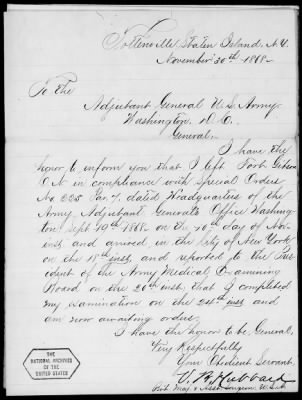 Tottenville Staten Island, N.Y.
November 30th 1868-
To the
Adjutant General U.S. Army.
Washington, D.C.
General,
I have the
honor to inform you that I left Fort Gibson
C.N. in compliance with Special Orders
No 225 Par. 7, dated Headquarters of the
Army Adjutant General's Office Washing-
ton Sept 19th 1868- on the 10th day of Nov.
inst and arrived in the city of New York
on the 18th inst, and reported to the Pres-
ident of the Army Medical Examining
Board on the 20th inst; that I completed
my examination on the 24th inst and
am now awaiting orders.
I have the honor to be, General.
Very Respectfully
Your Obedient Servant.
V. B. Hubbard
Bvt. Maj. & Asst. Surgeon U.S.A.
THE
NATIONAL ARCHIVES
OF THE
UNITED STATES